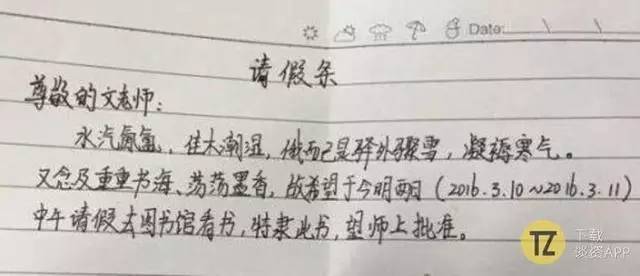 Date:
请假条
尊敬的文老师:
水汽氤氲,佳木潮湿,俄而已是驿外骤雪,凝寒气。
又念及重重书海、荡荡墨香,故希望于今明两日(2016.3.10~2016.3.11)
中午请假去图书馆看书,特隶此书,望师上批准。
TZ
下载
淡资APP